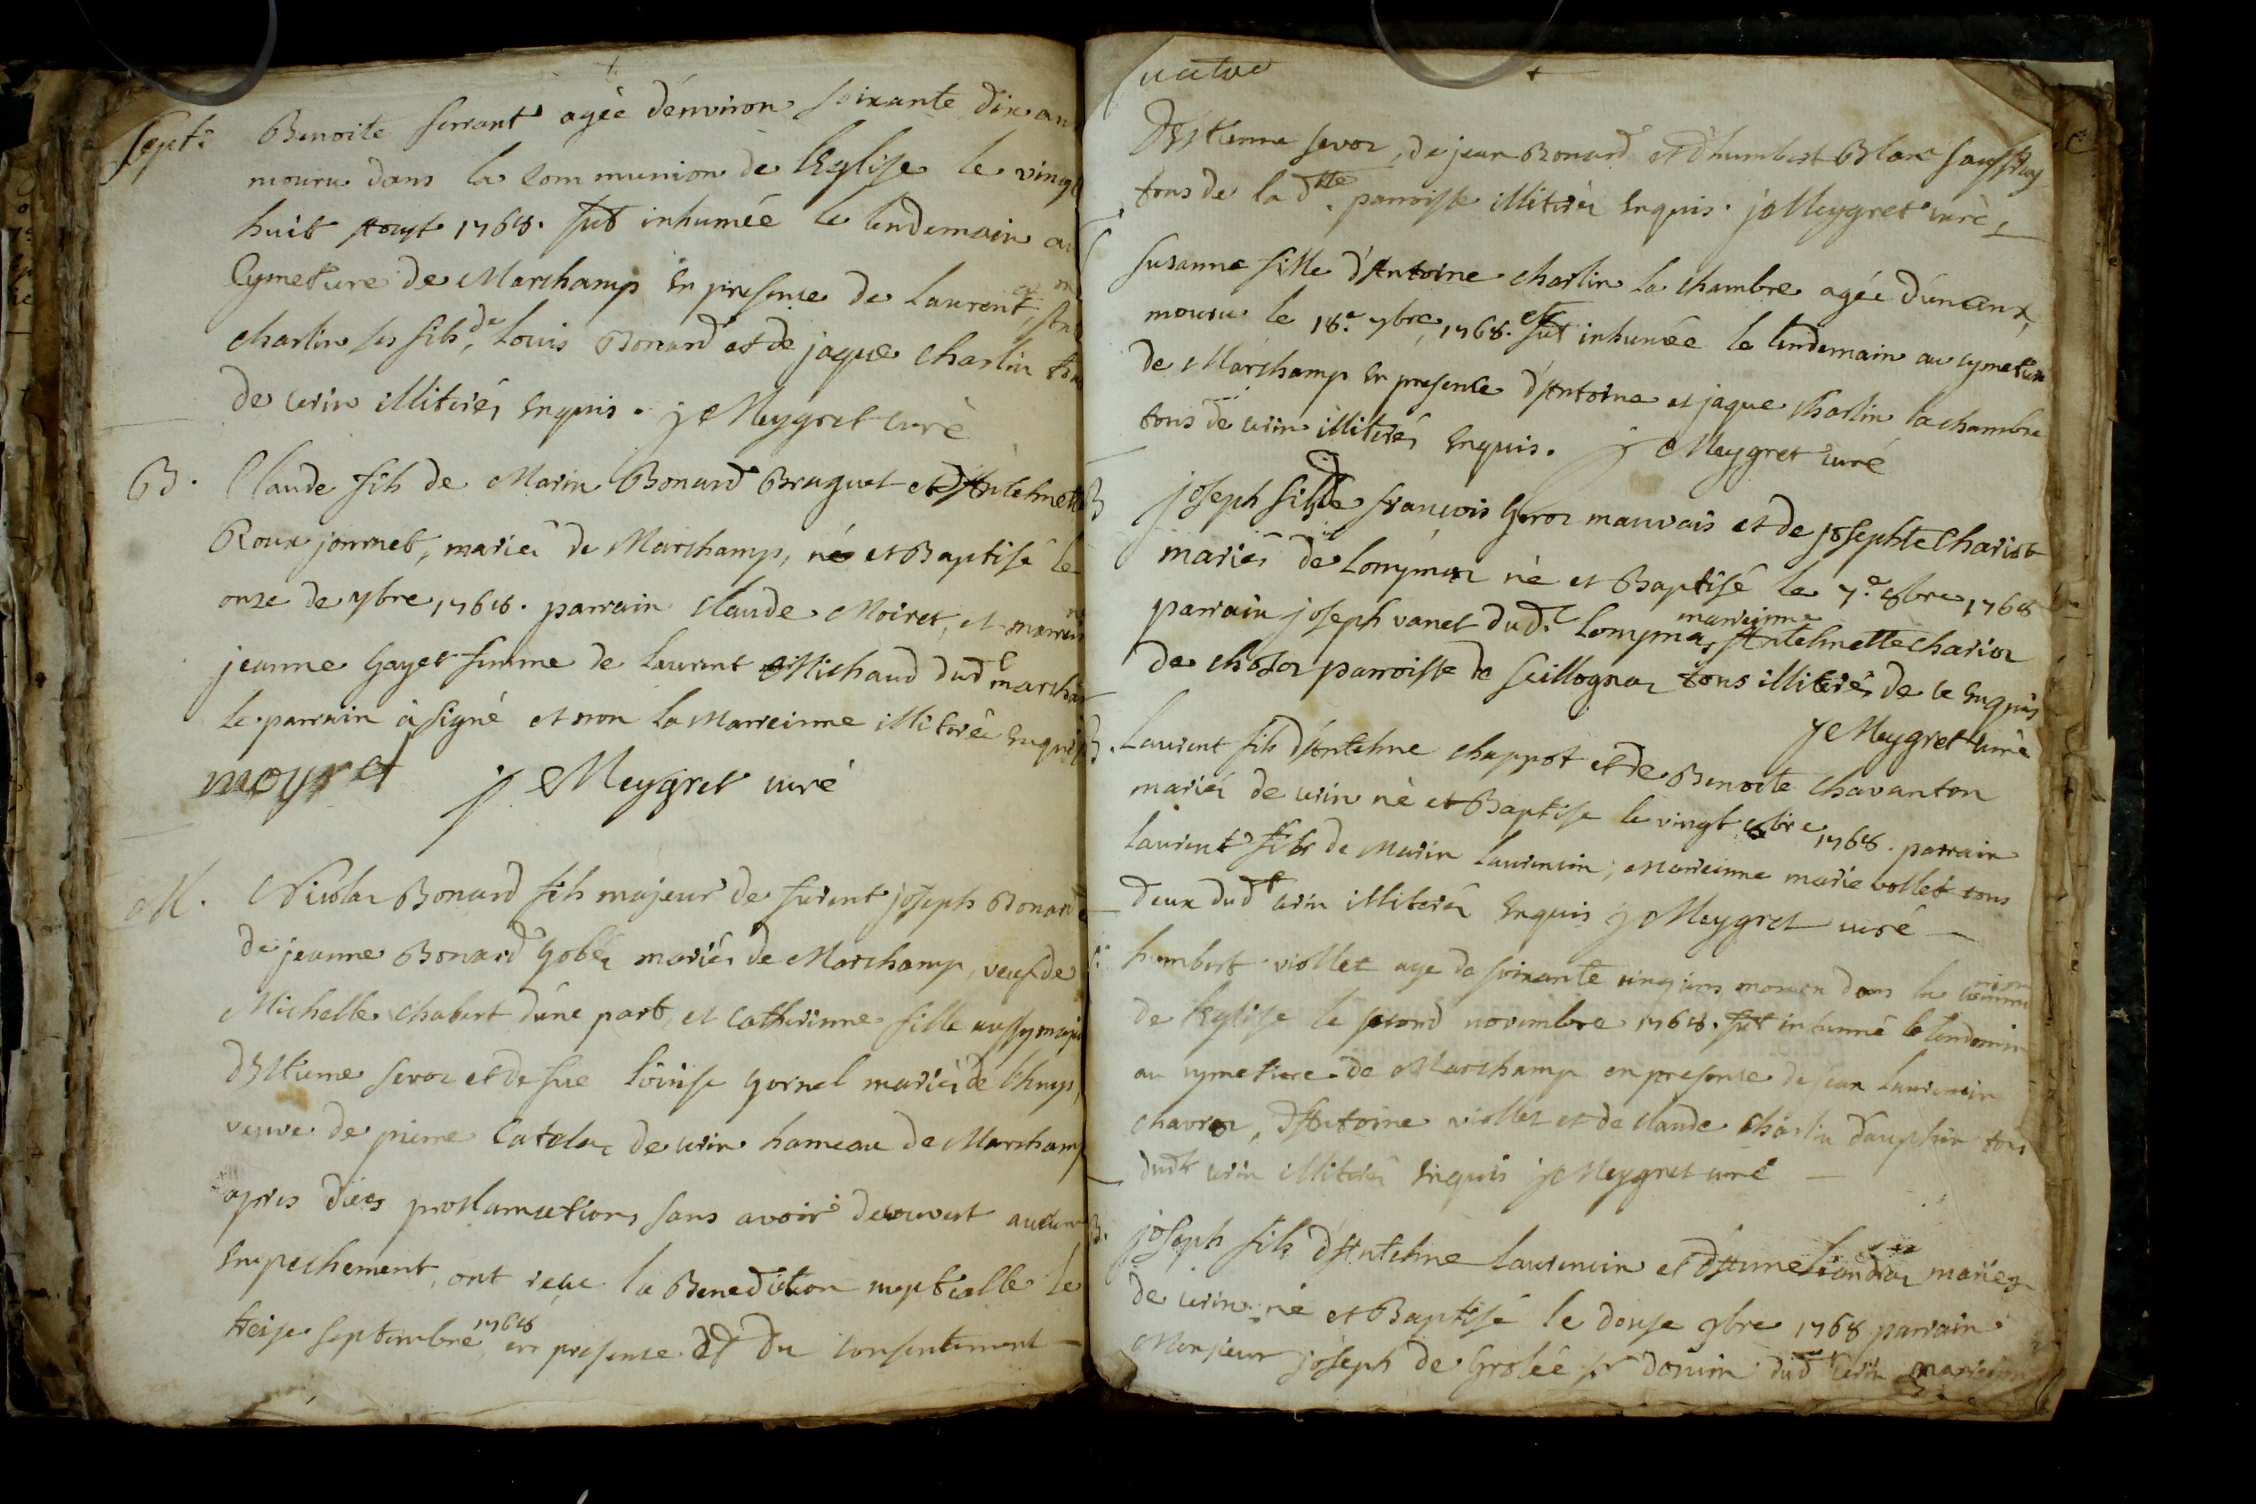 Septe Benoite ferrant agée d'environ soixante dix ans
mouru dans la communion de l'Eglise le vingt
huit Aoust 1768. fut inhumée le lendemain au
Cymetiere de Marchamp En presence de Laurent
charlin ses fils, de Louis Bonard et de jaque charlin tous
de cerin illiterés Enquis. j Meygret curé
B. Claude fils de Marin Bonard Braguet et d'Antelmette
Roux jommet, mariés de Marchamp, né et Baptisé le
onze de 7bre 1768. parrain claude Moiret, et
jeanne Gayet femme de Laurent Michaud dud.t marchamp
le parrain a signé et non la Marreinne illiterée Enquise
moyret j Meygret curé
M. Nicolas Bonard fils majeur de furent joseph Bonard
de jeanne Bonard Gobéz mariés de Marchamp, veuf de
Michelle chabert d'une part, et Catherinne fille aussy majeure
d'Etienne sevoz et de fue Louise Gornel mariés de
veuve de pierre Catelaz de cerin hameau de Marchamp
apres dües proclamations sans avoir decouvert aucun
Empechement, ont reçu la Benediction nuptialle le
treize septembre 1768 en presence Et Du consentement
D'Etienne sevoz, de jean Bonard et d'humbert Blanc
tous de la d.tte parroisse illiterés Enquis. j Meygret curé
Susanne fille d'Antoine charlin la chambre agée d'un ans,
mouru le 18.e 7bre 1768. et fut inhumée le lendemain au cymetiere
de Marchamp En presence d'Antoine et jaque charlin la chambre
tous de cerin illiterés Enquis. j Meygret curé
B joseph fils de françois Goroz mauvais et de josephte Chariot
mariés de Lompnaz né et Baptisé le 7.e 8bre 1768
parrain joseph vanet dud.t Lompnaz, marreinne Antelmette Charioz
de chosaz parroisse de Seillognaz tous illiterés de ce Enquis
j Meygret curé
B. Laurent fils d'Antelme chappot et de Benoite Chavanton
mariés de cerin né et Baptisé le vingt 8bre 1768. parrain
Laurent fils de Marin Laurencin, Marreinne marie vollet tous
deux dud.t cerin illiterés Enquis j Meygret curé
humbert viollet age de soixante cinq ans mouru dans la communion
de l'Eglise le second novembre 1768. fut inhumé le lendemain
au cymetiere de Marchamp en presence de jean Laurencin
chavroz, d'Antoine viollet et de claude Charlin dauphin tous
dud.t cerin illiterés Enquis j Meygret curé
B. joseph fils d'Antelme Laurencin et d'Anne mariez
de cerin né et Baptisé le douse 9bre 1768 parrain
Monsieur joseph de Grolée Sr donim dud.t cerin marreinne